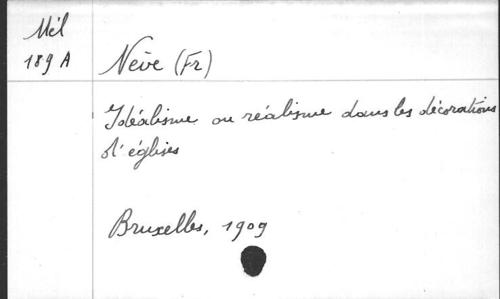 Mél
189 A
Nève (Fr)
Idéalisme ou réalisme dans les décorations
d'églises
Bruxelles, 1909